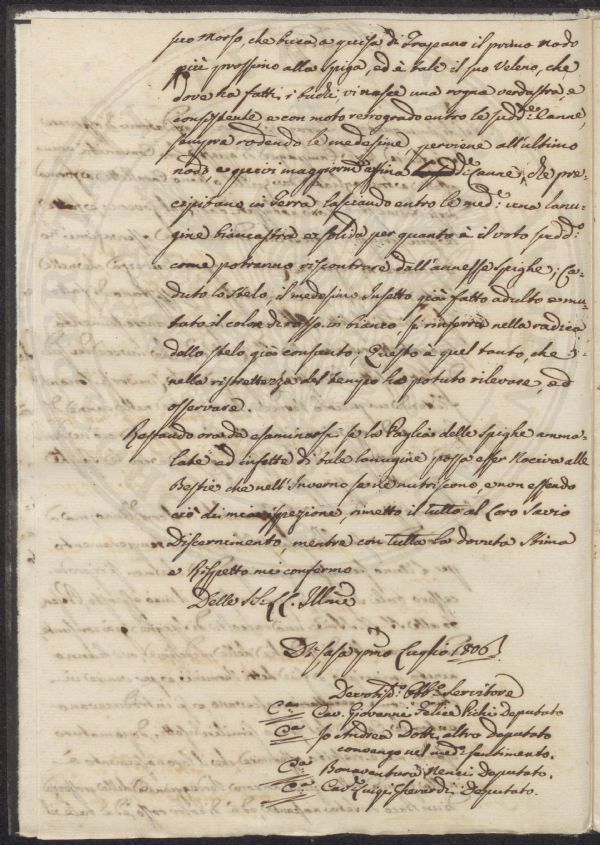 suo Morso, che buca, a guisa di Trapano il primo nodo
più prossimo alla spiga, ed è tale il suo Veleno, che
dove ha fatti i buchi vi nasce una rogna verdastra, e
consistente e con moto retrogrado entro le sudd:e Canne,
sempre rodendo le medesime, perviene all'ultimo
nodo, e quivi maggiorm:e assina sudd:e Canne, che pre-
cipitano in Terra lasciando entro le med:e una lanu-
gine biancastra e solida per quanto è il voto sudd:o
come potranno riscontrare dall'annesse spighe; Ca-
duto lo Stelo, il medesimo Insetto già fatto adulto e mu-
tato il colore di rosso in bianco si rinserra nella radica
dello stelo già consento; Questo è quel tanto, che
nella ristrettezza del tempo ho potuto rilevare, ed
osservare.
Restando ora da esaminarsi se la Paglia delle Spighe amma-
late ed infette di tale lanugine possa esser Nociva alle
Bestie che nell'Inverno se ne nutriscono, e non essendo
ciò di mia ispezione, rimetto il tutto al Loro Savio
Discernimento, mentre con tutta la dovuta Stima
e Rispetto mi confermo
Delle SS: LL. Illme
Di Casa pmo Luglio 1806
Devotis:o Obb:o Servitore
Cav. Giovanni Felice Deputato
Io Andrea Dotti altro Deputato
convengo nel med:o sentimento.
Bonaventura Nenci Deputato.
Cav: Luigi Gherardi Deputato.